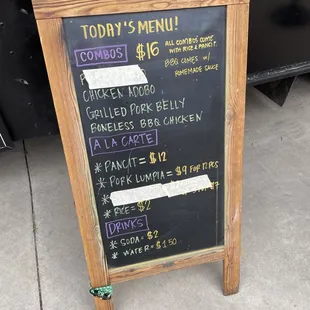 TODAY'S MENU!
COMBOS $16 ALL COMBOS COME
WITH RICE & PANCIT.
BBQ COMES W/
HOMEMADE SAUCE
CHICKEN ADOBO
GRILLED PORK BELLY
BONELESS BBQ CHICKEN
A LA CARTE
* PANCIT = $12
* PORK LUMPIA = $9 FOR 12 PCS
* RICE = $2
DRINKS
* SODA = $2
* WATER = $1.50